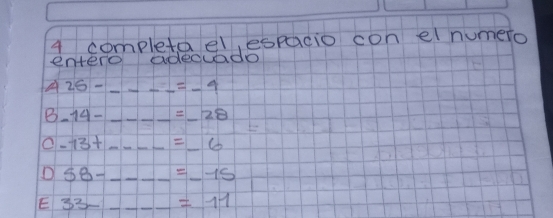 4 completa el espacio con el numero
entero adecuado
A 26 - _ _ _ _ = - 9
B - 14 - _ _ _ _ = - 28
C - 13 + _ _ _ _ = - 6
D 58 - _ _ _ _ = - 15
E 33 - _ _ _ _ = 11